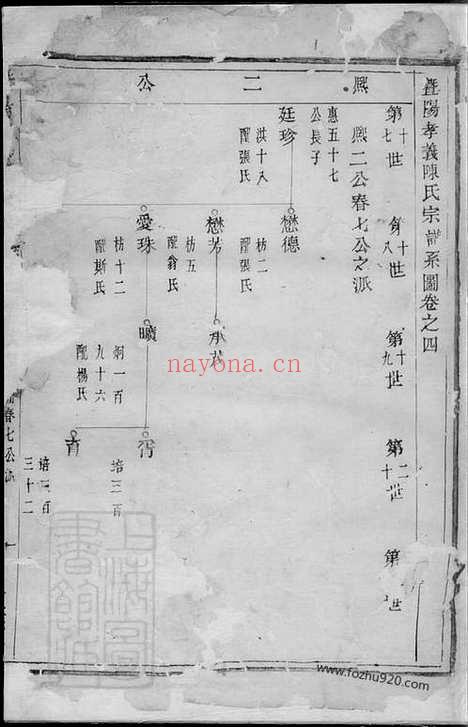 暨陽孝義陳氏宗譜系圖卷之四
第十七世
第十八世
第十九世
第二十世
第 世
熈二公
熈二公春七公之派
廷珍
惠五十七公長子
洪十八
配張氏
懋德
枋二
配張氏
懋芳
枋五
配翁氏
愛珠
枋十二
配斯氏
曠
炯一百九十六
配楊氏
培三百
培三百三十二
春七公派
上海圖書館藏
nayona.cn
www.fozhu920.com